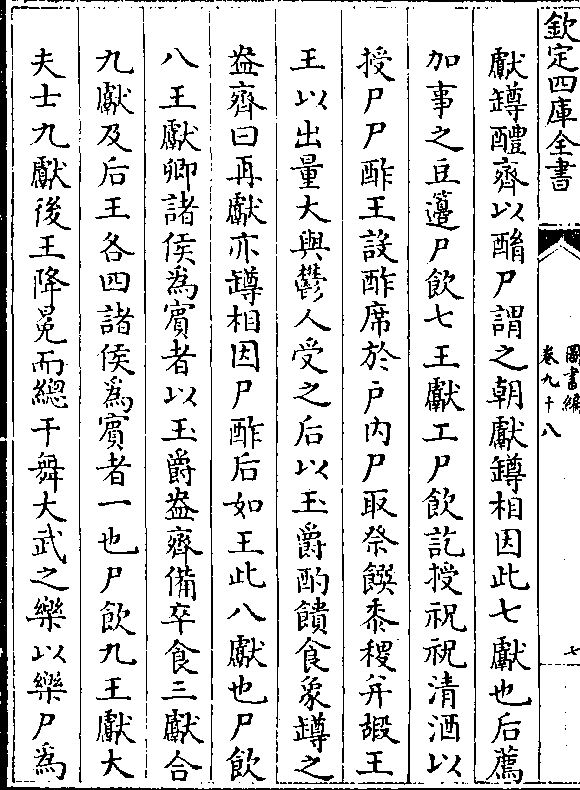 欽定四庫全書
圖書編
卷九十八
七
獻罇醴齊以酳尸謂之朝獻罇相因此七獻也后薦
加事之豆籩尸飲七王獻工尸飲訖授祝祝清酒以
授尸尸酢王設酢席於户内尸取祭饌黍稷并嘏王
王以出量大與鬱人受之后以玉爵酌饋食象罇之
盎齊曰再獻亦罇相因尸酢后如王此八獻也尸飲
八王獻卿諸侯為賓者以玉爵盎齊備卒食三獻合
九獻及后王各四諸侯為賓者一也尸飲九王獻大
夫士九獻後王降冕而總干舞大武之樂以樂尸為